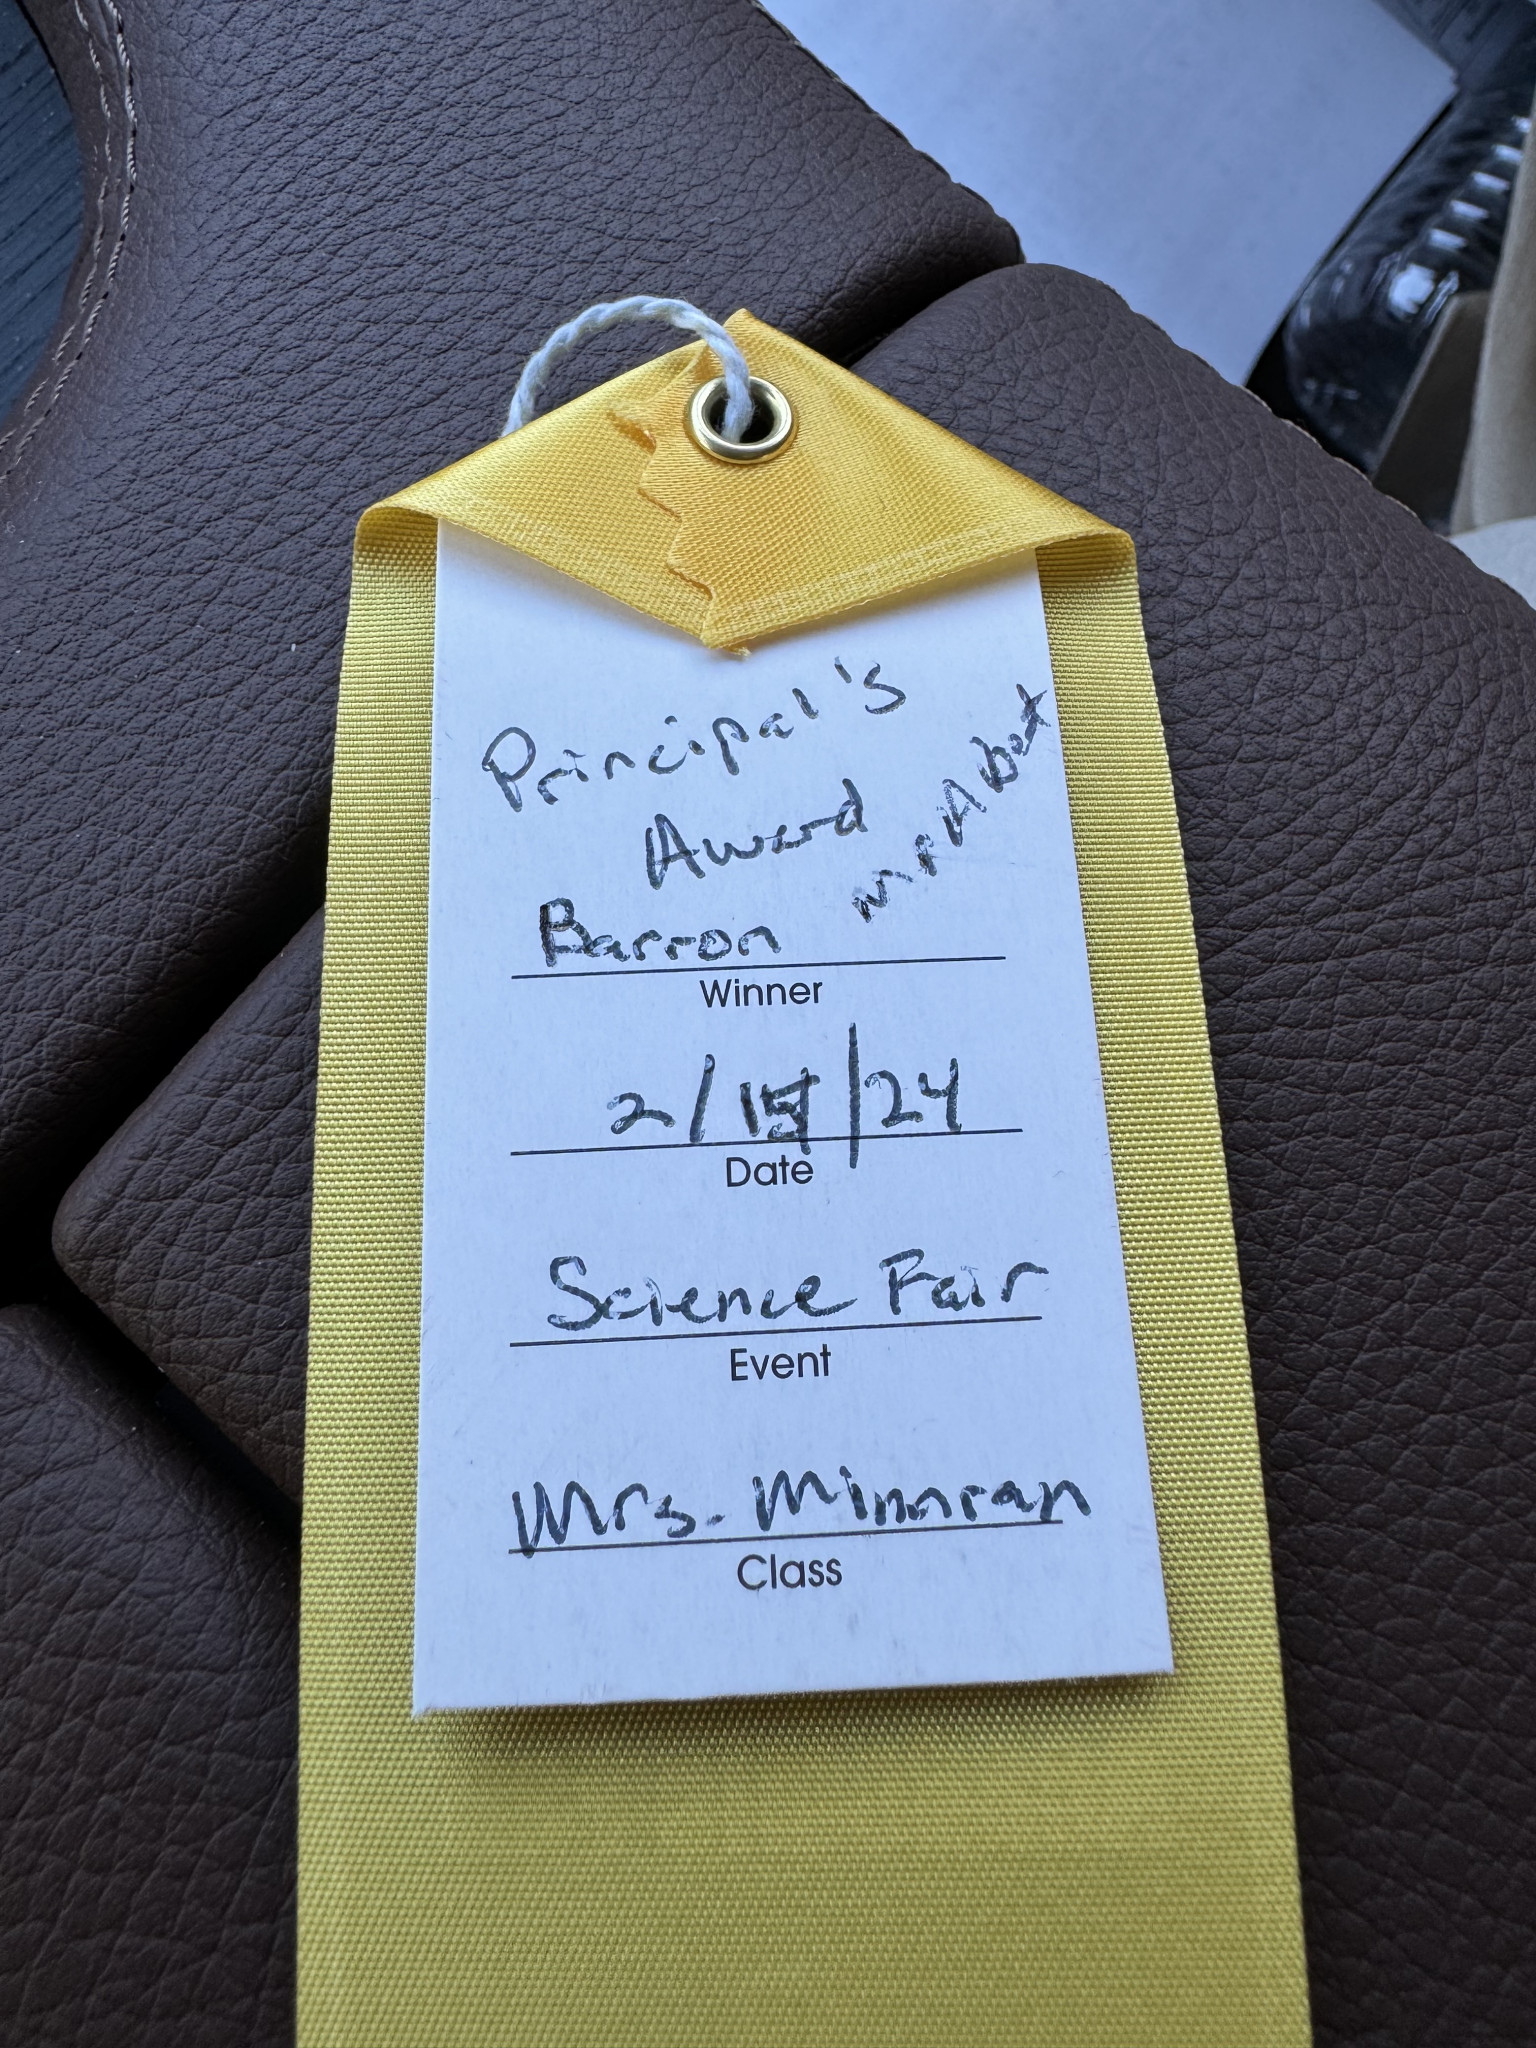 Principal's
Award
Mr. Abbot
Barron
Winner
2/15/24
Date
Science Fair
Event
Mrs. Mimran
Class